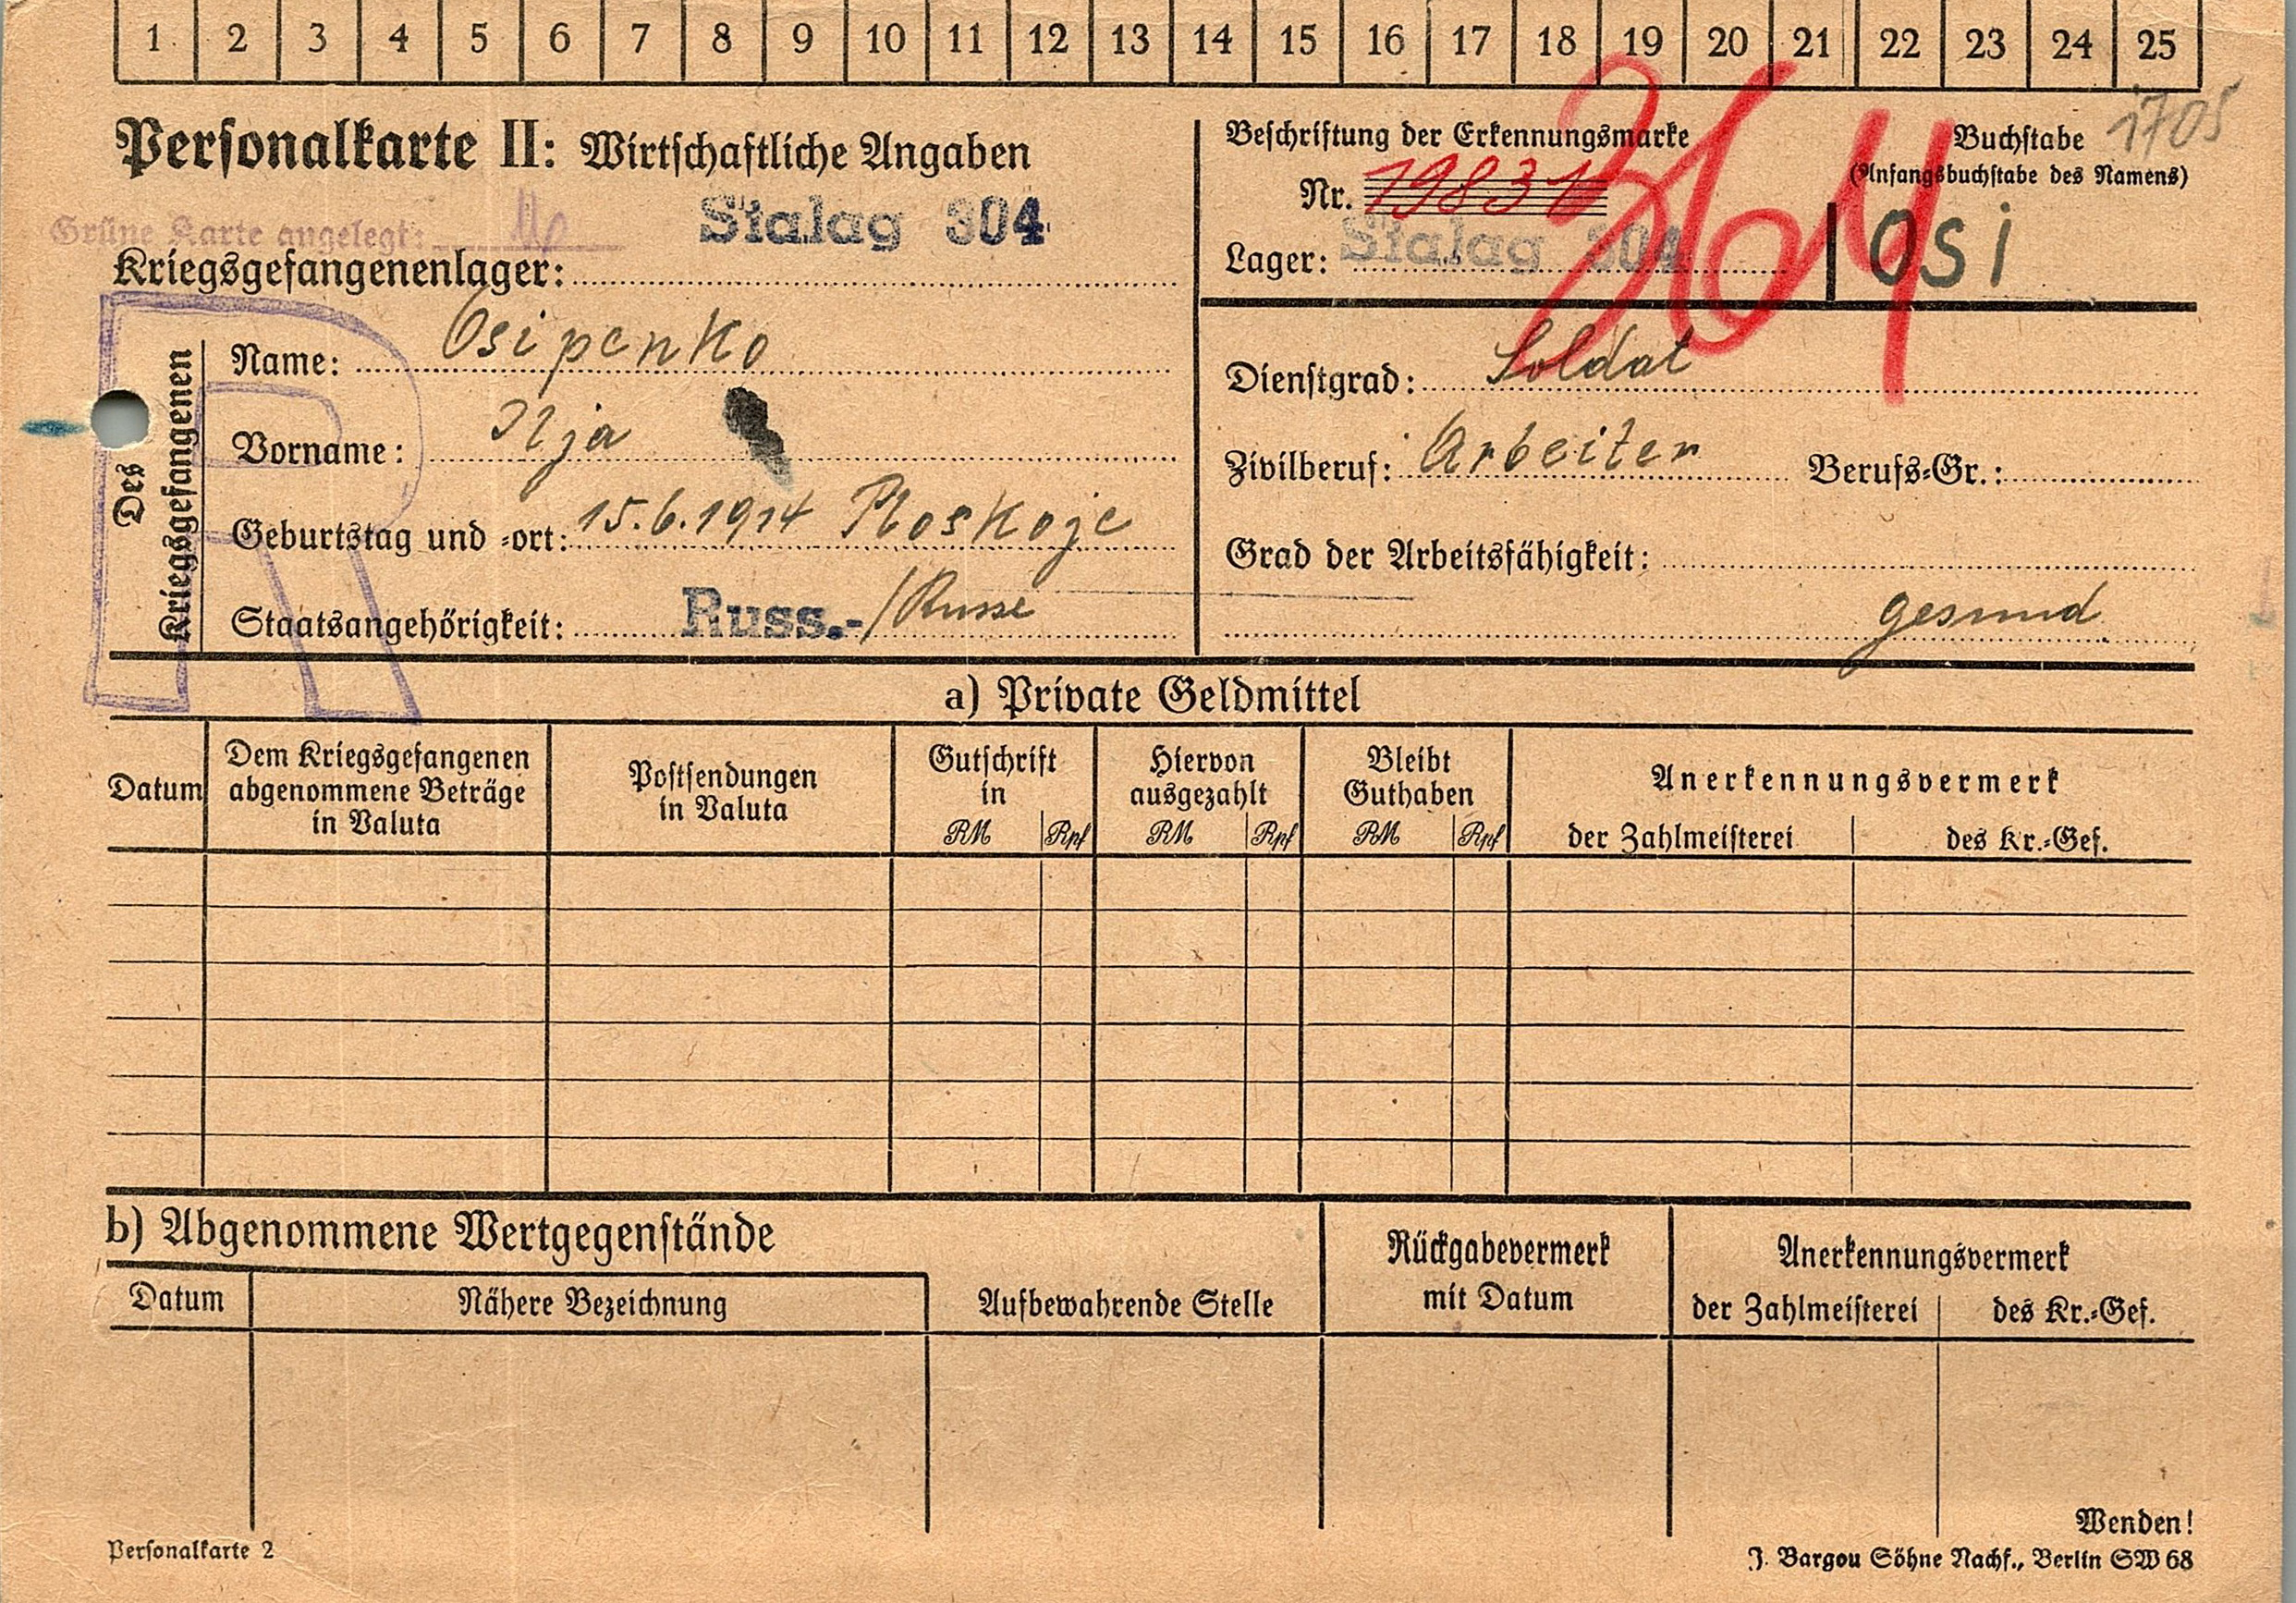 1 2 3 4 5 6 7 8 9 10 11 12 13 14 15 16 17 18 19 20 21 22 23 24 25
Personalkarte II: Wirtschaftliche Angaben
Grüne Karte angelegt:
Stalag 304
Kriegsgefangenenlager:
Des Kriegsgefangenen
Name: Osipenko
Vorname: Ilja
Geburtstag und =ort: 15.6.1914 Ploskoje
Staatsangehörigkeit: Russ.-/Russe
Beschriftung der Erkennungsmarke
Nr. 19831
Lager: Stalag 304
Buchstabe
(Anfangsbuchstabe des Namens)
1705
Osi
Dienstgrad: Soldat
Zivilberuf: Arbeiter Berufs=Gr.:
Grad der Arbeitsfähigkeit:
gesund
R
a) Private Geldmittel
Datum
Dem Kriegsgefangenen
abgenommene Beträge
in Valuta
Postsendungen
in Valuta
Gutschrift
in
RM Rpf
Hiervon
ausgezahlt
RM Rpf
Bleibt
Guthaben
RM Rpf
Anerkennungsvermerk
der Zahlmeisterei des Kr.=Gef.
b) Abgenommene Wertgegenstände
Datum Nähere Bezeichnung
Aufbewahrende Stelle
Rückgabevermerk
mit Datum
Anerkennungsvermerk
der Zahlmeisterei des Kr.=Gef.
Wenden!
Personalkarte 2
J. Bargou Söhne Nachf., Berlin SW 68